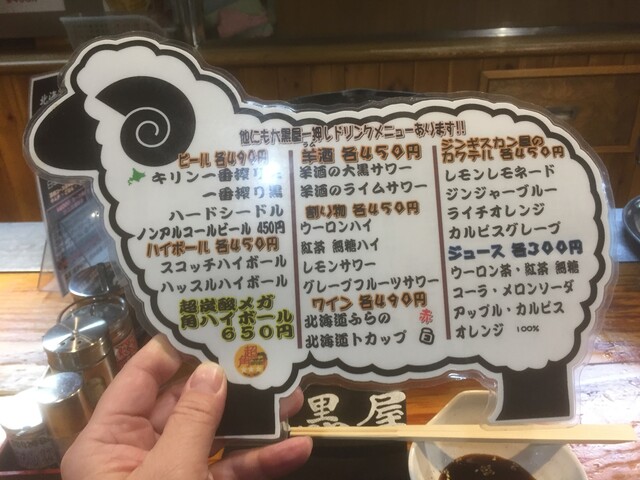 他にも大黒屋一押しドリンクメニューあります!!
ビール 各490円
キリン一番搾り生
一番搾り黒
ハードシードル
ノンアルコールビール 450円
ハイボール 各450円
スコッチハイボール
ハッスルハイボール
超炭酸メガ
角ハイボール
650円
羊酒 各450円
羊酒の大黒サワー
羊酒のライムサワー
割り物 各450円
ウーロンハイ
紅茶 無糖ハイ
レモンサワー
グレープフルーツサワー
ワイン 各490円
北海道ふらの 赤
北海道トカップ 白
ジンギスカン屋の
カクテル 各450円
レモンレモネード
ジンジャーブルー
ライチオレンジ
カルピスグレープ
ジュース 各300円
ウーロン茶・紅茶 無糖
コーラ・メロンソーダ
アップル・カルピス
オレンジ 100%
黒屋